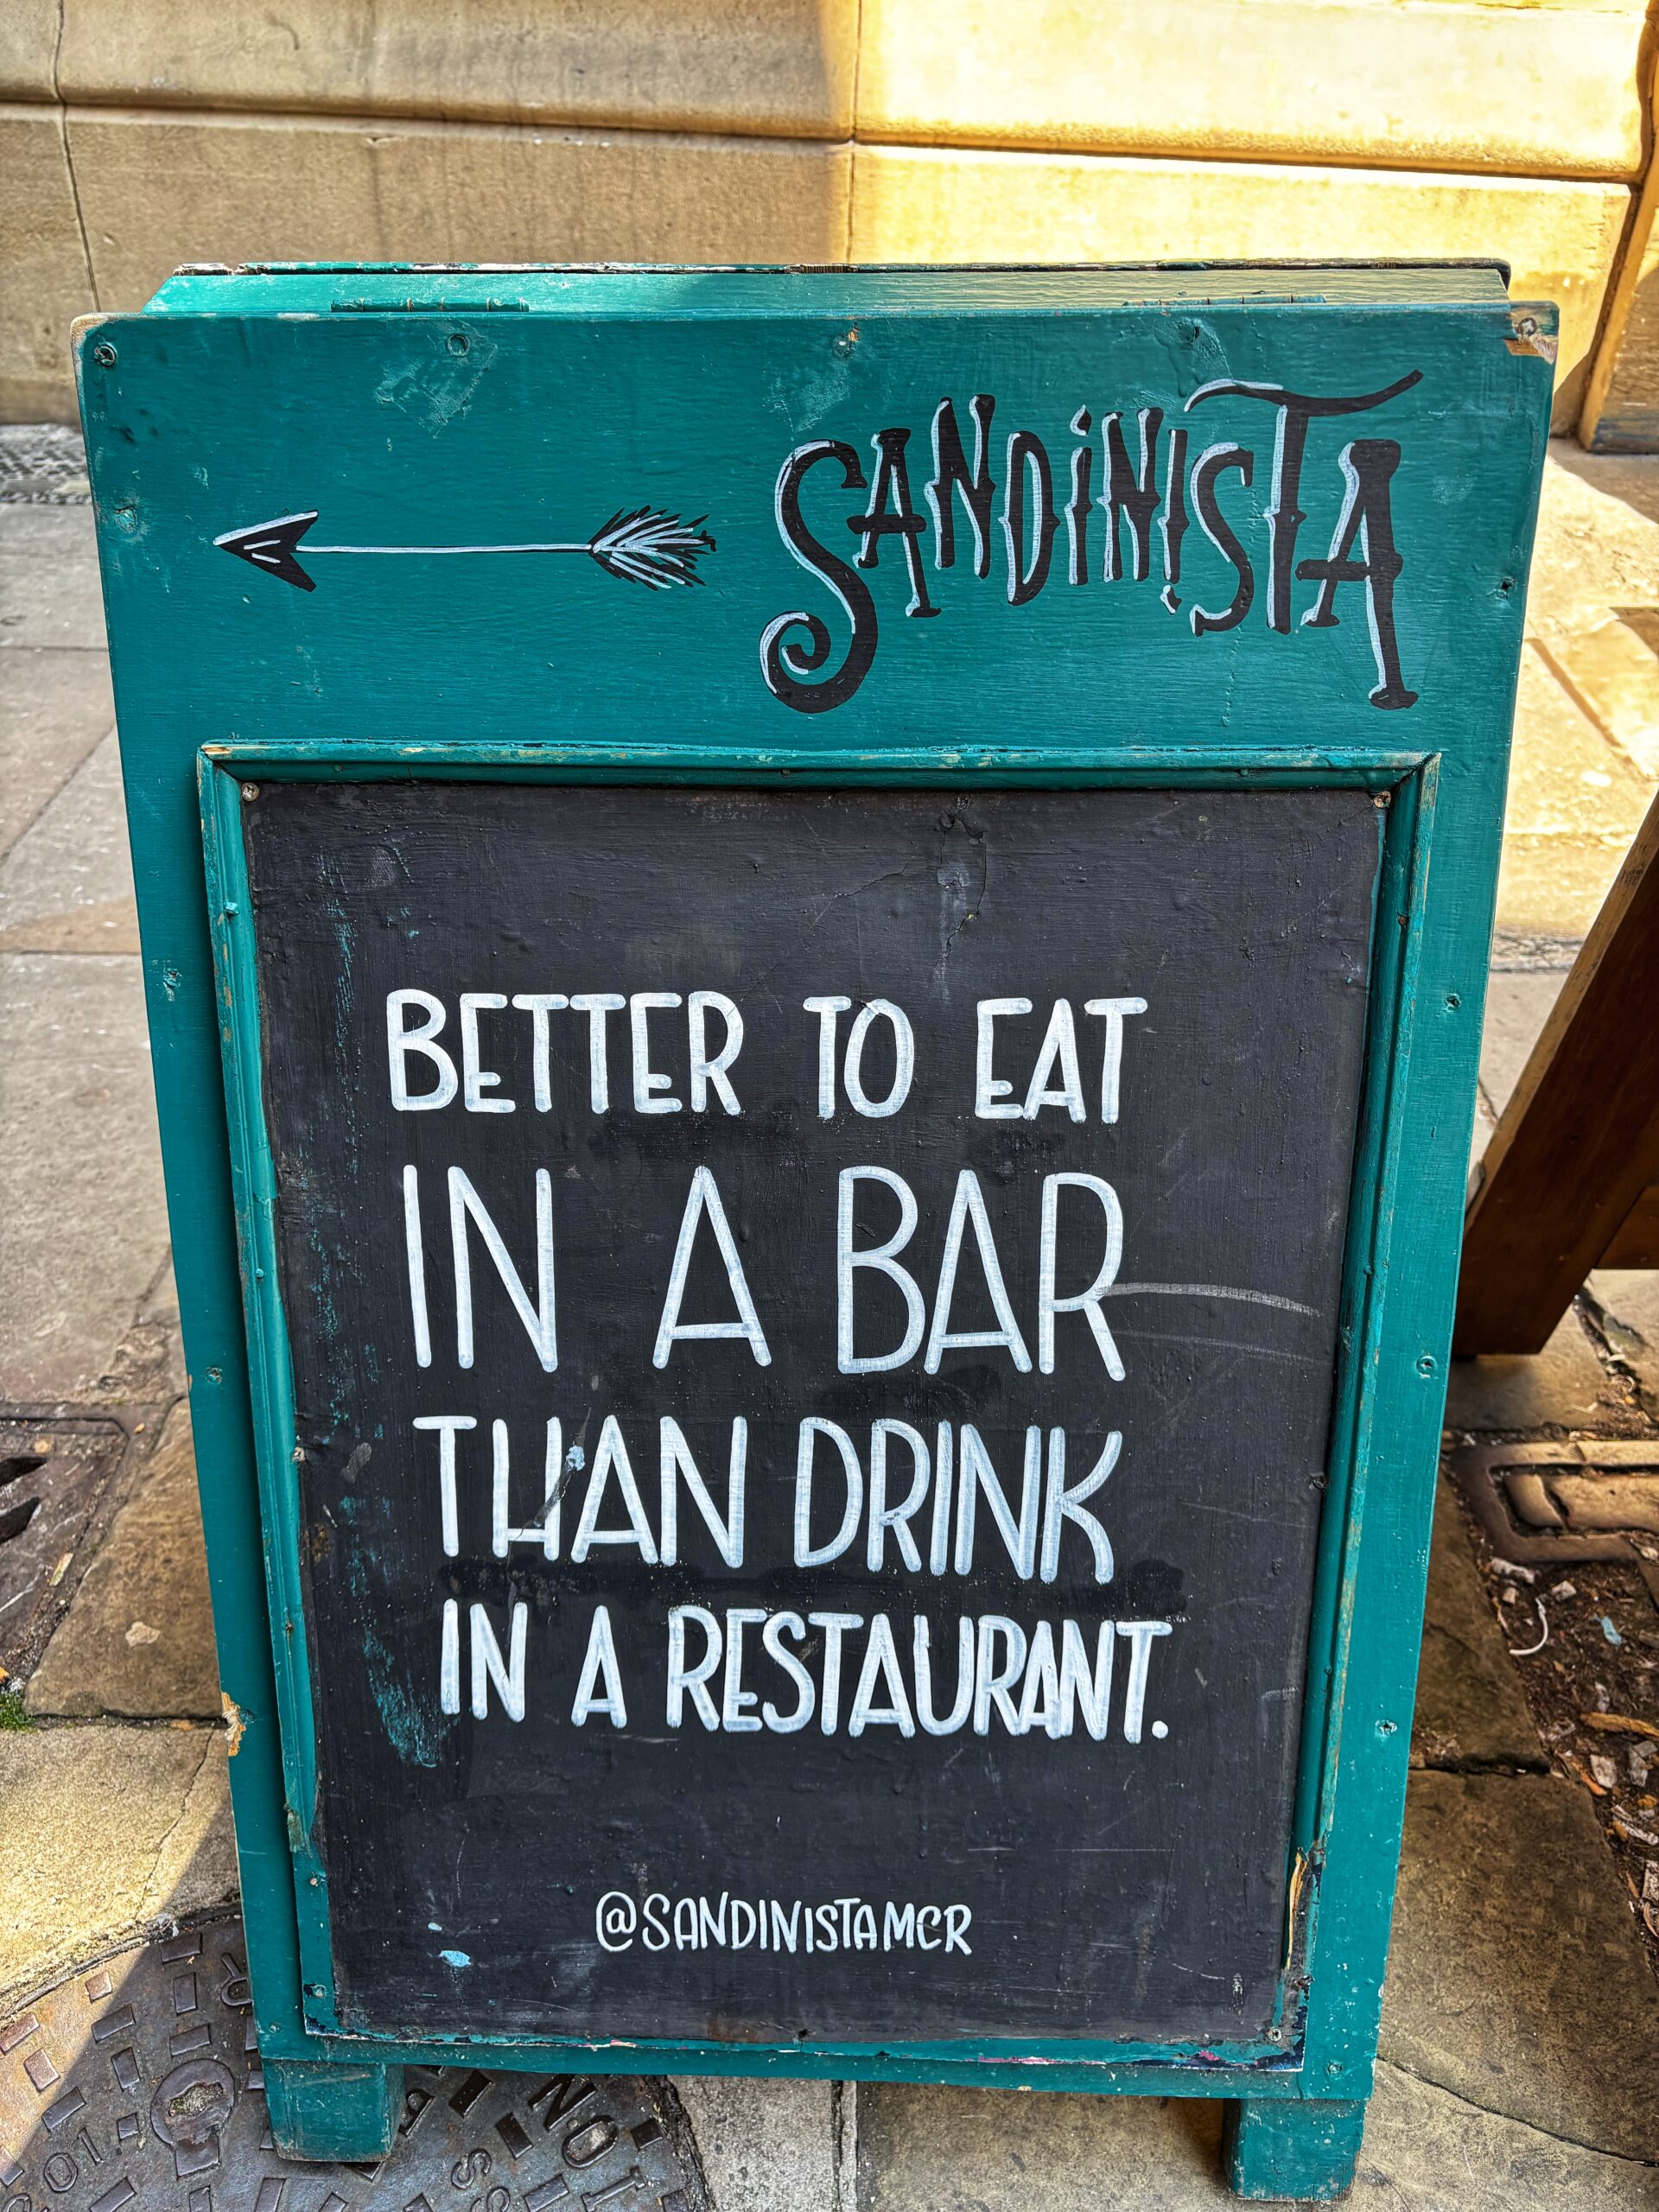 SANDINISTA
BETTER TO EAT
IN A BAR
THAN DRINK
IN A RESTAURANT.
@SANDINISTAMCR